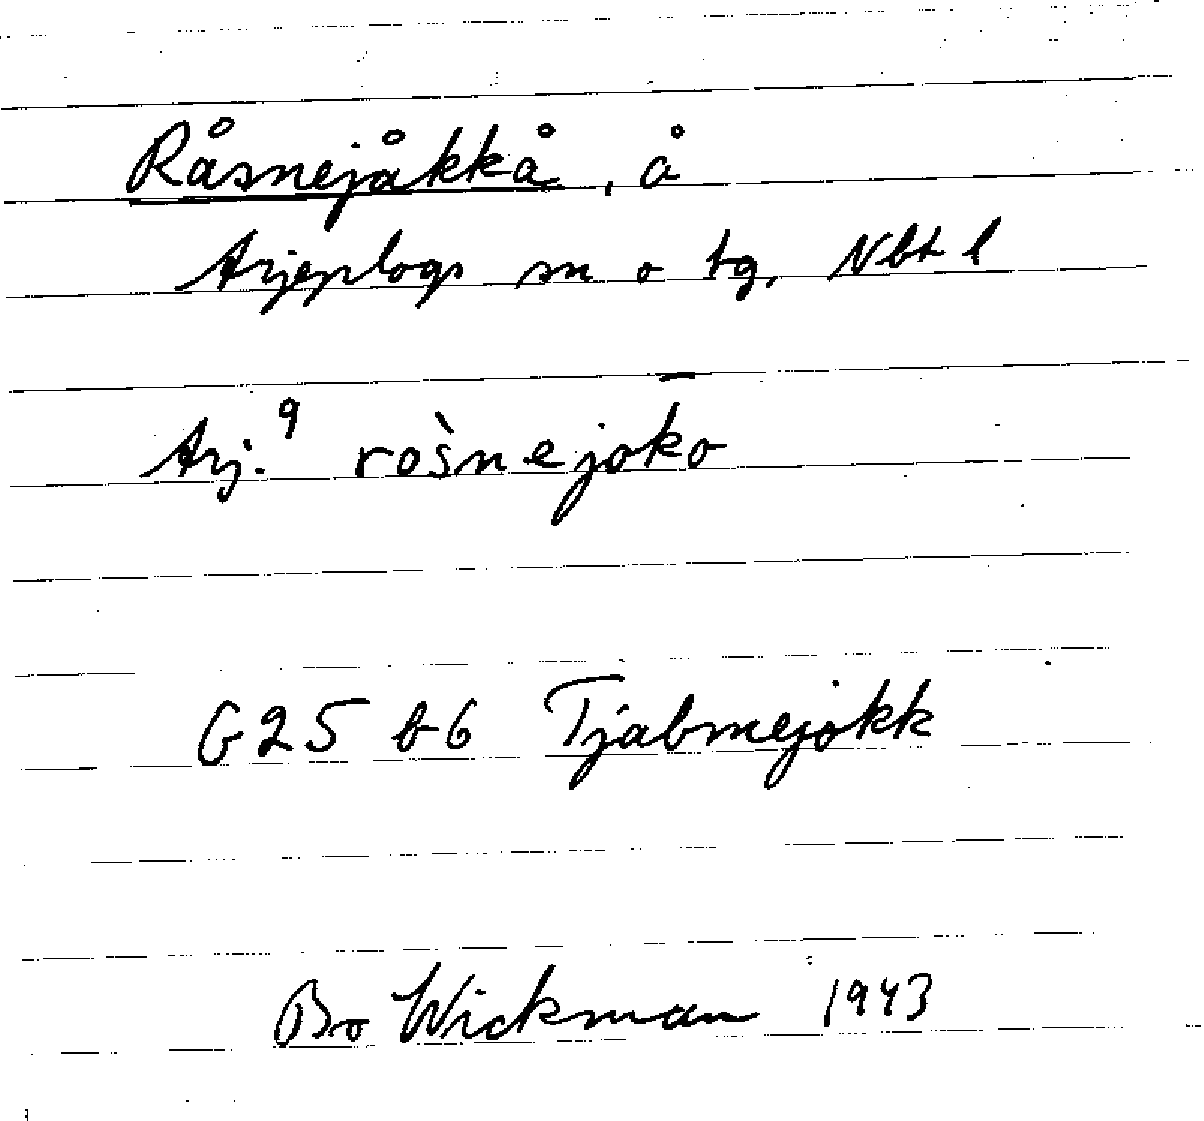 Råsnejåkkå, å
Arjeplogs sn o tg, Nbt l
Arj.9 ros̀nejok̄o
G25 b6 Tjabmejokk
Bo Wickman 1943